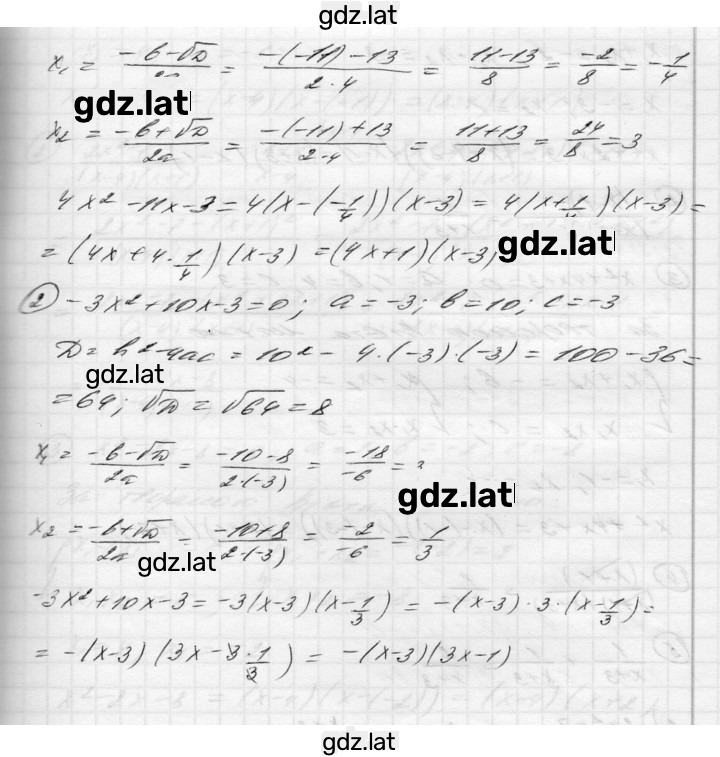 gdz.lat
x₁ = (-b-√D)/2a = (-(-11)-13)/(2·4) = (11-13)/8 = -2/8 = -1/4
gdz.lat
x₂ = (-b+√D)/2a = (-(-11)+13)/(2·4) = (11+13)/8 = 24/8 = 3
4x² - 11x - 3 = 4(x-(-1/4))(x-3) = 4(x+1/4)(x-3) =
= (4x+4·1/4)(x-3) = (4x+1)(x-3)
gdz.lat
2) -3x²+10x-3=0; a=-3; b=10; c=-3
D = b²-4ac = 10² - 4·(-3)·(-3) = 100-36 =
gdz.lat
= 64; √D = √64 = 8
x₁ = (-b-√D)/2a = (-10-8)/(2·(-3)) = -18/-6 = 3
gdz.lat
x₂ = (-b+√D)/2a = (-10+8)/(2·(-3)) = -2/-6 = 1/3
gdz.lat
-3x²+10x-3 = -3(x-3)(x-1/3) = -(x-3)·3·(x-1/3) =
= -(x-3)(3x-3·1/3) = -(x-3)(3x-1)
gdz.lat